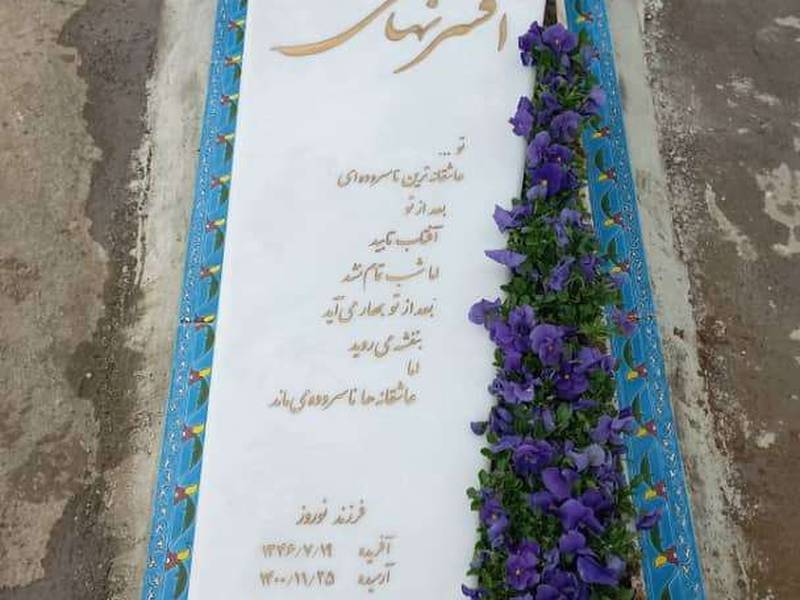 افسر نهانی
تو ...
عاشقانه‌ترین ناسروده‌ای
بعد از تو
آفتاب تابید
اما شب تمام نشد
بعد از تو بهار می‌آید
بنفشه می‌روید
اما
عاشقانه‌ها ناسروده می‌ماند
فرزند نوروز
آفریده ۱۳۴۶/۷/۱۹
آرمیده ۱۴۰۰/۱۱/۲۵